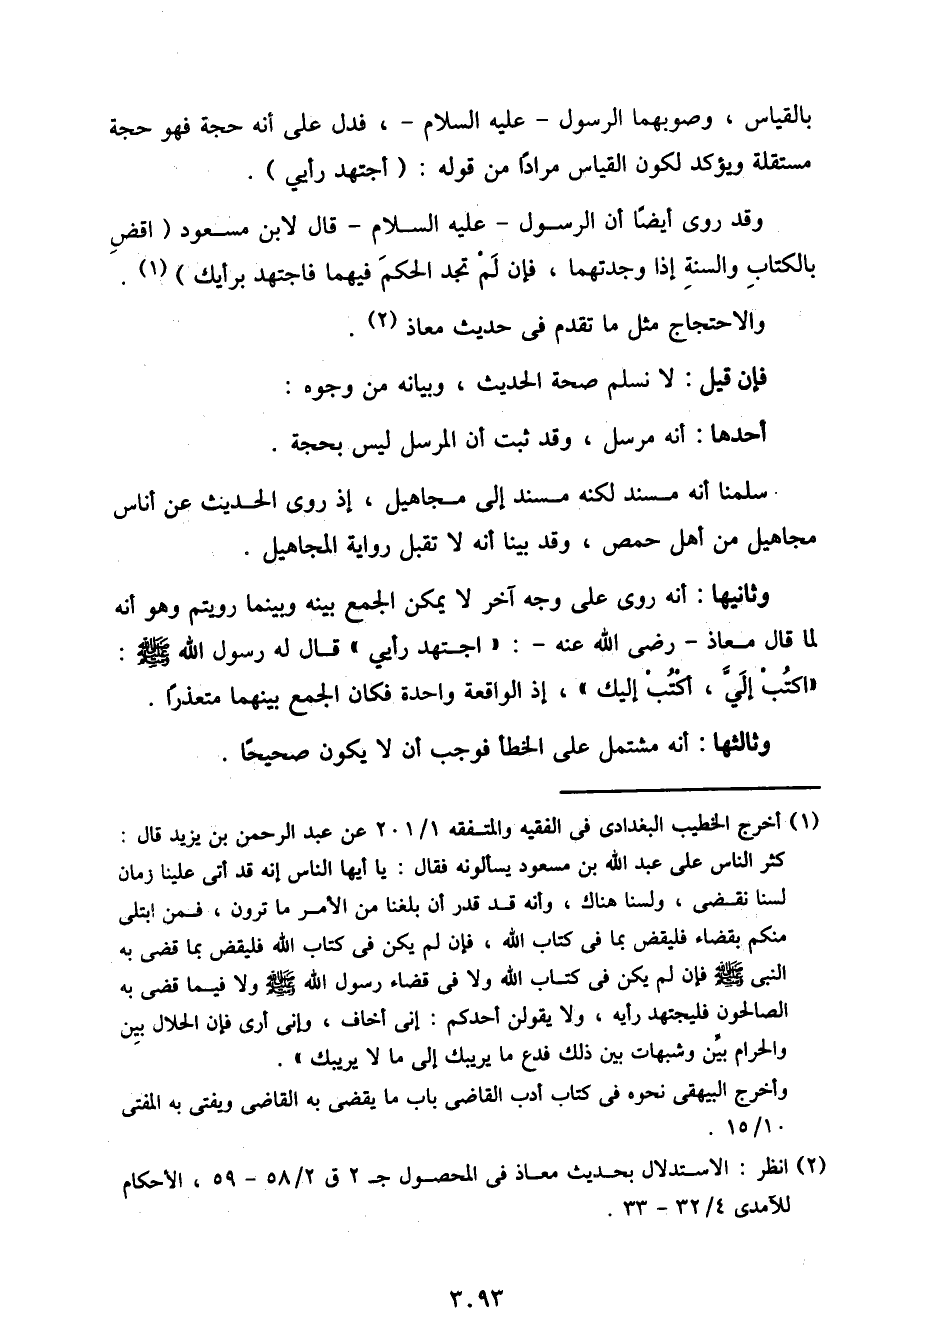 بالقياس ، وصوبهما الرسول – عليه السلام – ، فدل على أنه حجة فهو حجة
مستقلة ويؤكد لكون القياس مرادًا من قوله : ( أجتهد رأيي ) .
وقد روى أيضًا أن الرسول – عليه السلام – قال لابن مسعود ( اقضِ
بالكتابِ والسنةِ إذا وجدتهما ، فإن لَمْ تجد الحكمَ فيهما فاجتهد برأيك ) (١) .
والاحتجاج مثل ما تقدم فى حديث معاذ (٢) .
فإن قيل : لا نسلم صحة الحديث ، وبيانه من وجوه :
أحدها : أنه مرسل ، وقد ثبت أن المرسل ليس بحجة .
سلمنا أنه مسند لكنه مسند إلى مجاهيل ، إذ روى الحديث عن أناس
مجاهيل من أهل حمص ، وقد بينا أنه لا تقبل رواية المجاهيل .
وثانيها : أنه روى على وجه آخر لا يمكن الجمع بينه وبينما رويتم وهو أنه
لما قال معاذ – رضى الله عنه – : « اجتهد رأيي » قال له رسول الله ﷺ :
«اكتُبْ إلَيَّ ، أكْتُبْ إليك » ، إذ الواقعة واحدة فكان الجمع بينهما متعذرًا .
وثالثها : أنه مشتمل على الخطأ فوجب أن لا يكون صحيحًا .
(١) أخرج الخطيب البغدادى فى الفقيه والمتفقه ٢٠١/١ عن عبد الرحمن بن يزيد قال :
كثر الناس على عبد الله بن مسعود يسألونه فقال : يا أيها الناس إنه قد أتى علينا زمان
لسنا نقضى ، ولسنا هناك ، وأنه قد قدر أن بلغنا من الأمر ما ترون ، فمن ابتلى
منكم بقضاء فليقض بما فى كتاب الله ، فإن لم يكن فى كتاب الله فليقض بما قضى به
النبى ﷺ فإن لم يكن فى كتاب الله ولا فى قضاء رسول الله ﷺ ولا فيما قضى به
الصالحون فليجتهد رأيه ، ولا يقولن أحدكم : إنى أخاف ، وإنى أرى فإن الحلال بين
والحرام بيِّن وشبهات بين ذلك فدع ما يريبك إلى ما لا يريبك » .
وأخرج البيهقى نحوه فى كتاب أدب القاضى باب ما يقضى به القاضى ويفتى به المفتى
١٥/١٠ .
(٢) انظر : الاستدلال بحديث معاذ فى المحصول جـ ٢ ق ٥٨/٢ – ٥٩ ، الأحكام
للآمدى ٣٢/٤ – ٣٣ .
٣٠٩٣